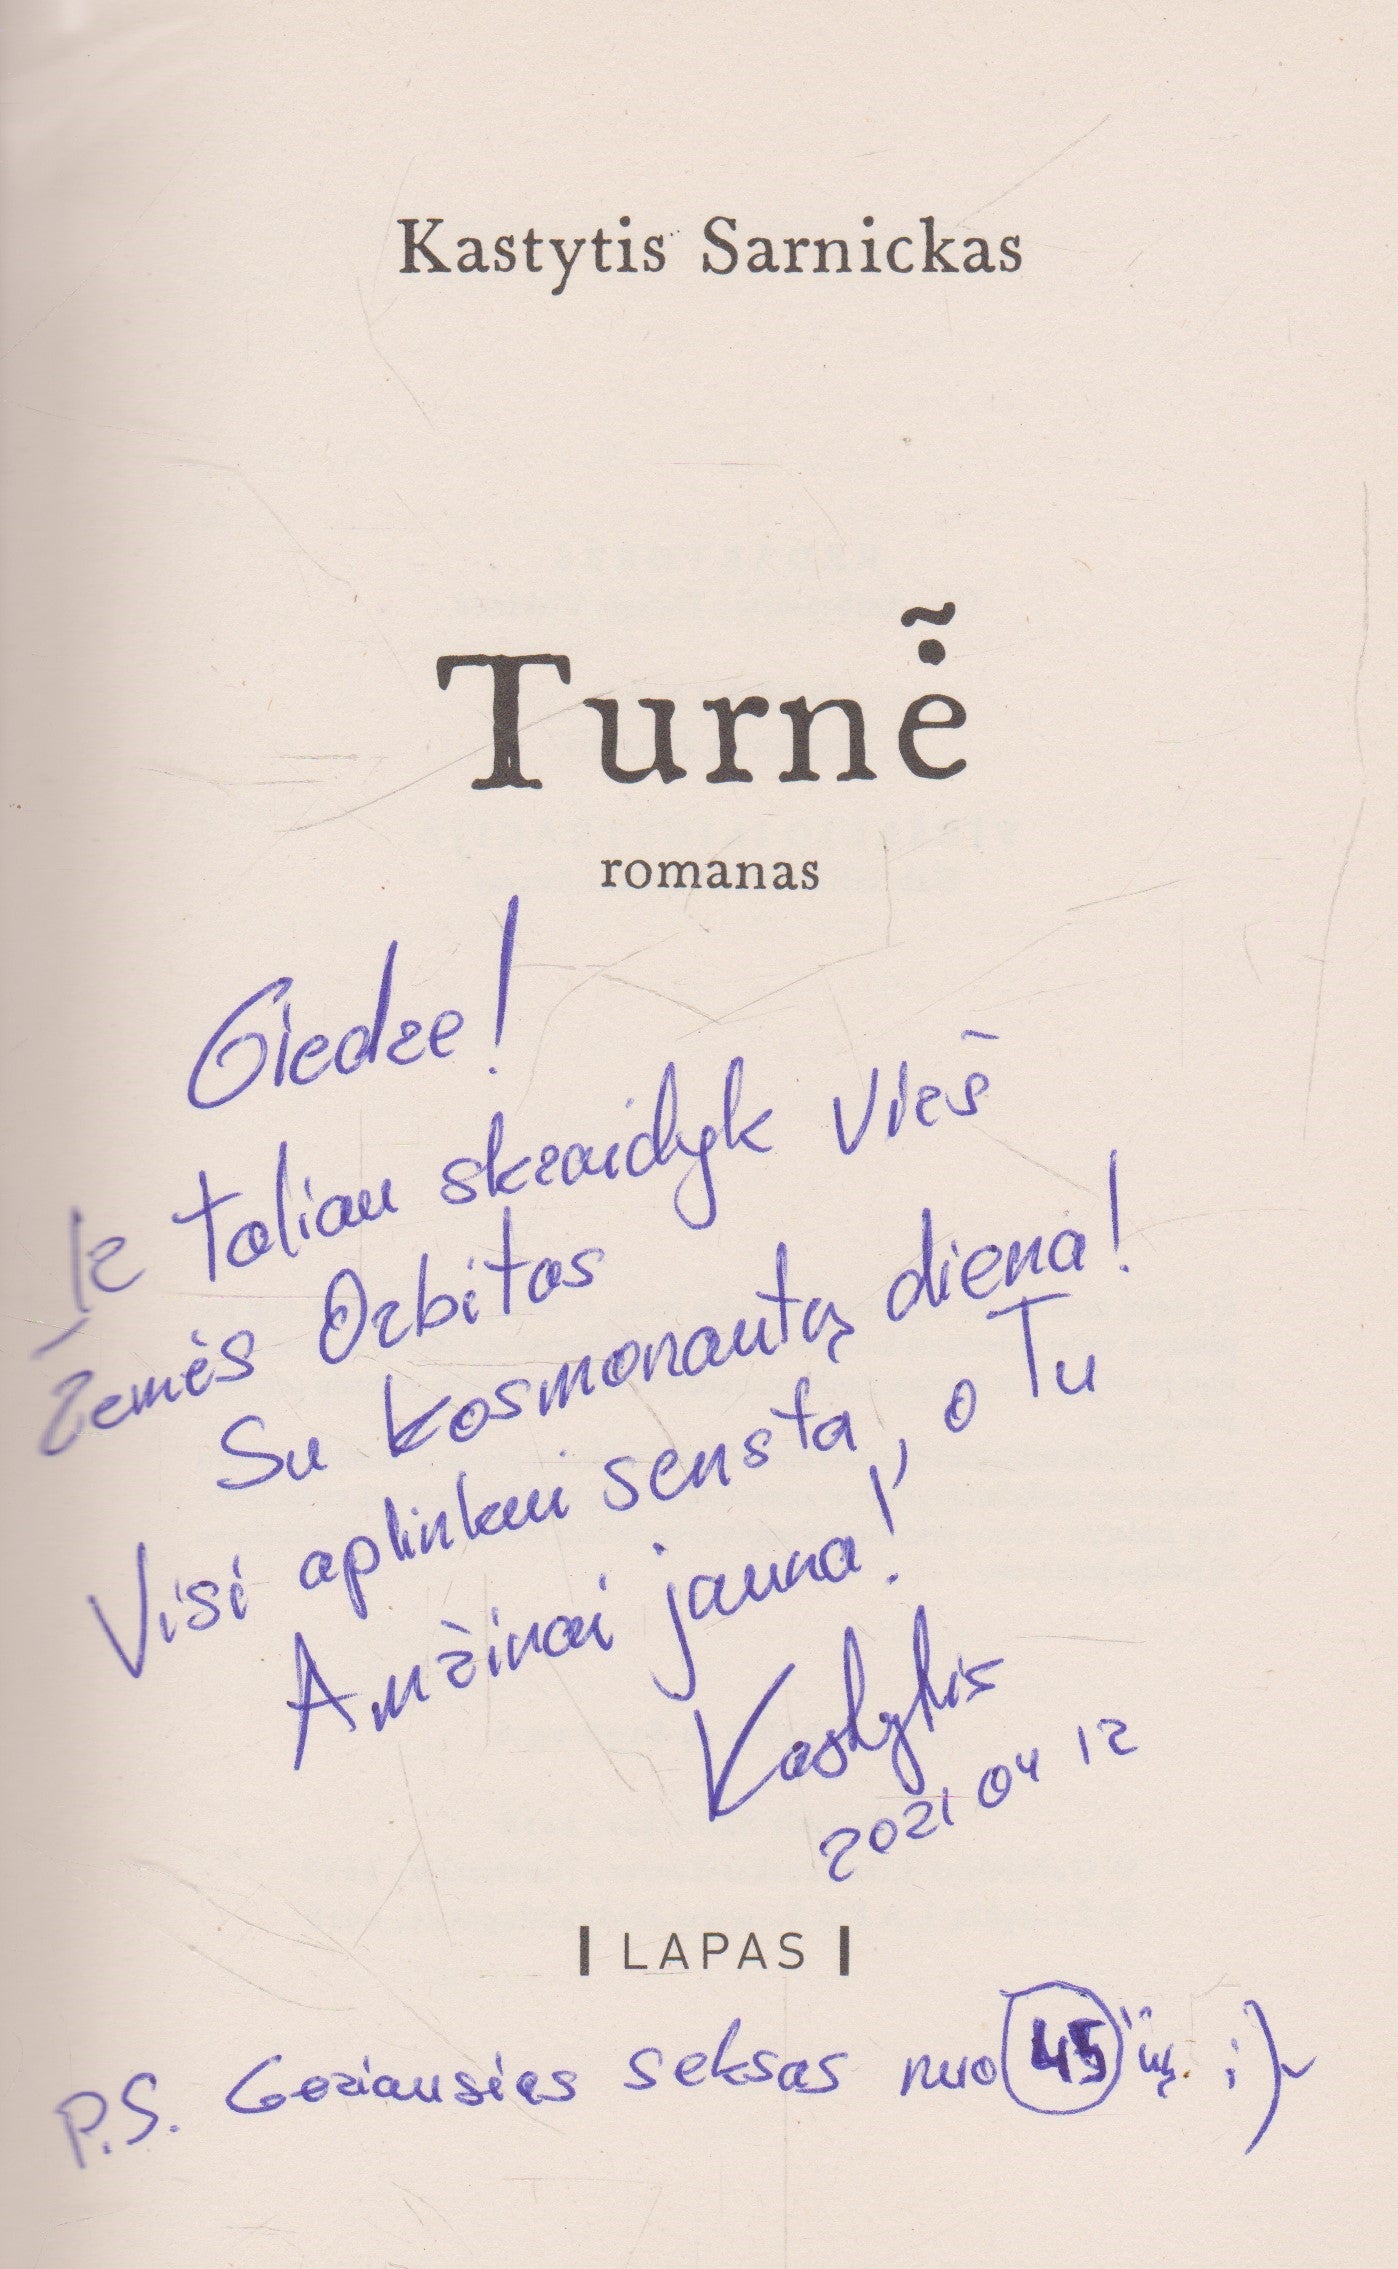 Kastytis Sarnickas
Turnė̃
romanas
Giedre!
Ir toliau skraidyk virš
žemės Orbitos
Su kosmonautų diena!
Visi aplinkui sensta, o Tu
Amžinai jauna!
Kastytis
2021 04 12
| LAPAS |
P.S. Geriausias seksas nuo 45"ių. ;)